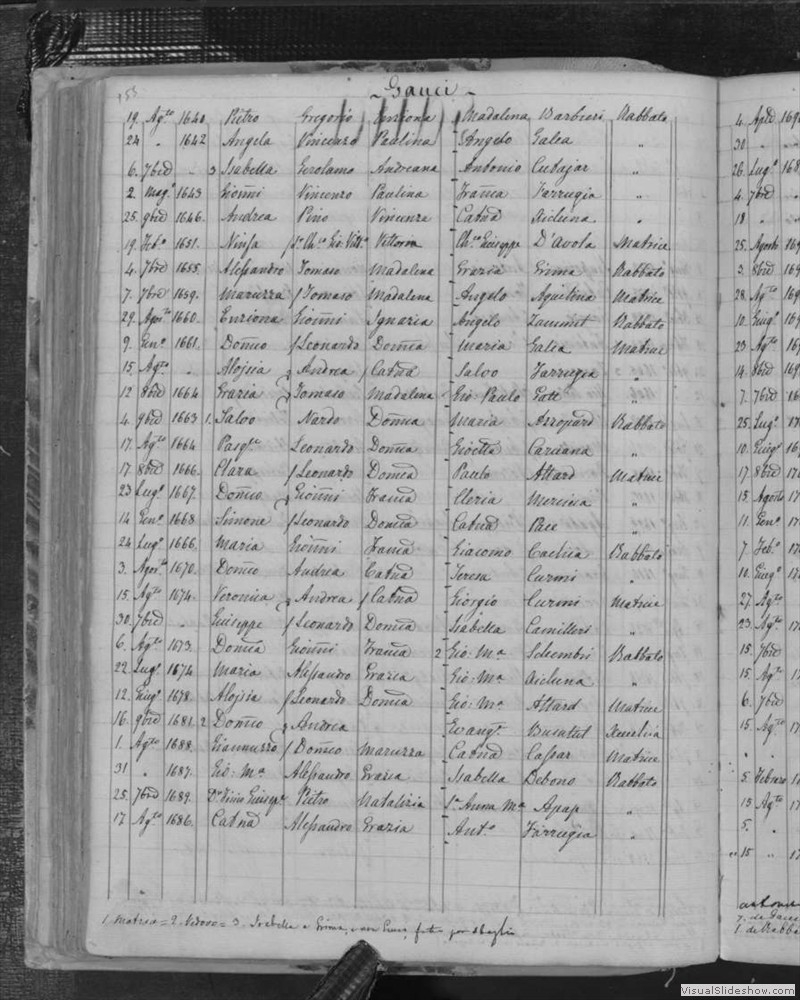 153
Gauci
19. Agto 1640 Pietro Gregorio Enziona Madalena Barbieri Rabbato
24 " 1642 Angela Vincenzo Paulina Angelo Galea "
6. 7bre " 3 Isabella Gerolamo Andreana Antonio Cutajar "
2. Mago 1643 Gionni Vincenzo Paulina Franca Farrugia "
25. 9bre 1646. Andrea Pino Vincenza Catna Aicluna "
19. Febo 1651. Ninfa Vittoria Giuseppe D'Avola Matrice
4. 7bre 1655. Alessandro Tomaso Madalena Grazia Grima Rabbato
7. 7bre 1659. Maruzza Tomaso Madalena Angelo Aquilina Matrice
29. Agosto 1660. Enziona Gionni Ignazia Angelo Zammit Rabbato
9. Geno 1661. Domco Leonardo Domca Maria Galea Matrice
15 Agto " Aloysia Andrea Catna Salvo Farrugia "
12 8bre 1664 Grazia Tomaso Madalena Gio Paulo Gatt "
4. 9bre 1663 1. Salvo Nardo Domca Maria Azzopard Rabbato
17. Agto 1664 Pasqle Leonardo Domca Gioetta Caruana "
17. 8bre 1666. Clara Leonardo Domca Paulo Attard Matrice
23 Lugo 1667. Domco Gionni Franca Cleria Mercieca "
14 Geno 1668 Simone Leonardo Domca Catna Pace "
24 Lugo 1666. Maria Gionni Franca Giacomo Cachia Rabbato
3. Agosto 1670. Domco Andrea Catna Teresa Curmi "
15. Agto 1674. Veronica Andrea Catna Giorgio Curmi Matrice
30. 7bre " Giuseppe Leonardo Domca Isabella Camilleri "
6. Agto 1673. Domca Gionni Franca 2 Gio: Ma Scicembri Rabbato
22. Lugo 1674 Maria Alessandro Grazia Gio: Ma Aicluna "
12. Giugo 1678. Aloysia Leonardo Domca Gio: Ma Attard Matrice
16. 9bre 1681. 2 Domco Andrea Evangta Busuttil Xeuchia
1. Agto 1688. Giannuzzo Domco Maruzza Catna Cassar Matrice
31 " 1687. Gio: Ma Alessandro Grazia Isabella Debono Rabbato
25. 7bre 1689. Pietro Natalizia Sra Anna Ma Apap "
17 Agto 1686. Catna Alessandro Grazia Anto Farrugia "
1. Matrice = 2. Vedovo = 3. Isabella e Grima, e non Gauci, per sbaglio
4. Aple 169
30 "
26. Lugo 168
4. 7bre
18 "
25. Agosto 169
3. 8bre 169
28. Agto 169
10. Giugo 169
23 Agto 169
14. 8bre 169
7. 7bre
25. Lugo 17
10. Giugo 16
17 8bre 17
15 Agosto 17
11. Geno 17
7. Febo 17
10. Giugo 17
27. Agto
23. Agto 17
15. 7bre
15. Agto 17
6. 7bre
15. Agto 17
5. Febraro 17
15 Agto 17
5. "
15 " 17
VisualSlideshow.com